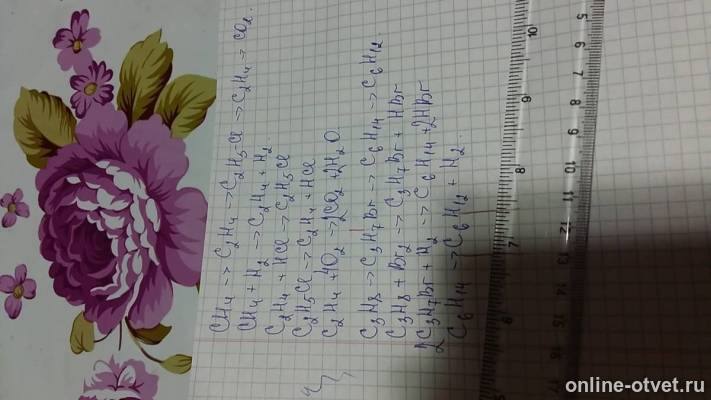 CH4 -> C2H4 -> C2H5-Cl -> C2H4 -> CO2.
CH4 + H2 -> C2H4 + H2
C2H4 + HCl -> C2H5Cl
C2H5Cl -> C2H4 + HCl
C2H4 + O2 -> 2CO2 + 2H2O
C3H8 -> C3H7Br -> C6H14 -> C6H12
C3H8 + Br2 -> C3H7Br + HBr
2C3H7Br + H2 -> C6H14 + 2HBr
C6H14 -> C6H12 + H2.
5 6 7 8 9 10 11 12 13 14 15 16 17
10 9 8 7 6 5
online-otvet.ru